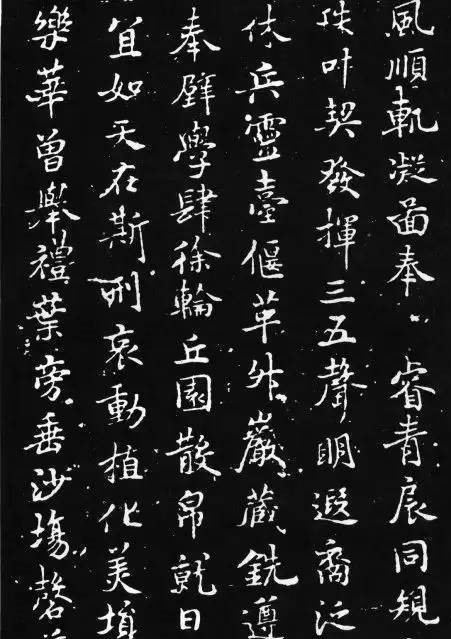 風順軌凝啚奉睿青扆同規
叶契發揮三五聲明遐裔泛
休兵靈臺偃革巖藏銑遵
奉璧學肆徐輪丘園散帛就日
宜如天在斯刑哀動植化美
樂華曾舉禮葉旁垂沙塲磬